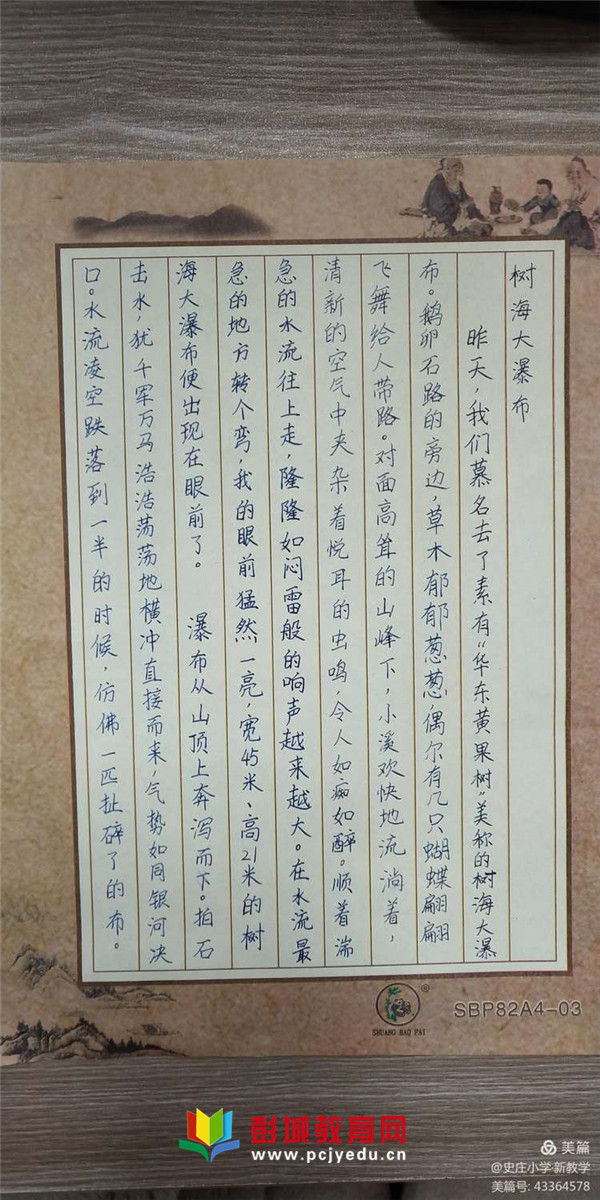 树海大瀑布
昨天，我们慕名去了素有“华东黄果树”美称的树海大瀑
布。鹅卵石路的旁边，草木郁郁葱葱，偶尔有几只蝴蝶翩翩
飞舞给人带路。对面高耸的山峰下，小溪欢快地流淌着，
清新的空气中夹杂着悦耳的虫鸣，令人如痴如醉。顺着湍
急的水流往上走，隆隆如闷雷般的响声越来越大。在水流最
急的地方转个弯，我的眼前猛然一亮，宽45米、高21米的树
海大瀑布便出现在眼前了。 瀑布从山顶上奔泻而下。拍石
击水，犹千军万马浩浩荡荡地横冲直接而来，气势如同银河决
口。水流凌空跌落到一半的时候，仿佛一匹扯碎了的布。
SHUANG BAO PAI
®
SBP82A4-03
彭城教育网
www.pcjyedu.cn
美篇
@史庄小学·新教学
美篇号: 43364578